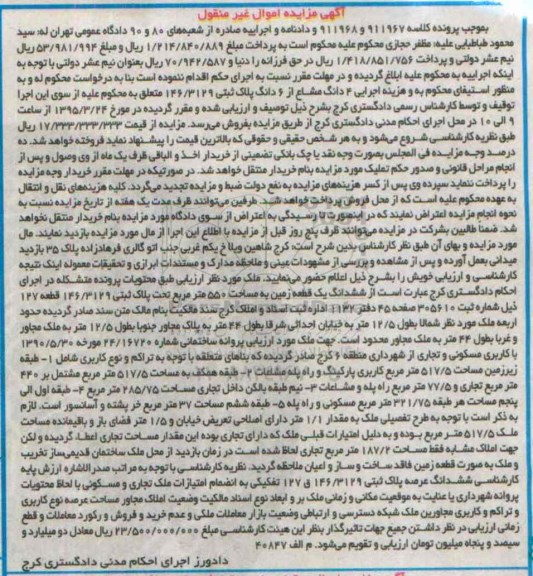 آگهی مزایده اموال غیر منقول
بموجب پرونده کلاسه ۹۱۱۹۶۷ و ۹۱۱۹۶۸ و دادنامه و اجراییه صادره از شعبه‌های ۸۰ و ۹۰ دادگاه عمومی تهران له: سید
محمود طباطبایی علیه: مظفر حجازی محکوم علیه محکوم است به پرداخت مبلغ ۱/۲۱۴/۸۴۰/۸۸۹ ریال و مبلغ ۵۳/۹۸۱/۹۹۴ ریال
نیم عشر دولتی و پرداخت ۱/۴۱۸/۸۵۱/۷۵۶ ریال در حق فرزانه را دنیا و ۷۰/۹۴۲/۵۸۷ ریال بعنوان نیم عشر دولتی با توجه به
اینکه اجراییه به محکوم علیه ابلاغ گردیده و در مهلت مقرر نسبت به اجرای حکم اقدام ننموده است بنا به درخواست محکوم له و به
منظور استیفای محکوم به و هزینه اجرایی ۴ دانگ مشاع از ۶ دانگ پلاک ثبتی ۱۴۶/۳۱۲۹ متعلق به محکوم علیه از سوی این اجرا
توقیف و توسط کارشناس رسمی دادگستری کرج بشرح ذیل توصیف و ارزیابی شده و مقرر گردیده در مورخ ۱۳۹۵/۳/۲۴ از ساعت
۹ الی ۱۰ در محل اجرای احکام مدنی دادگستری کرج از طریق مزایده بفروش می‌رسد. مزایده از قیمت ۱۷/۳۳۳/۳۳۳/۳۳۳ ریال
طبق نظریه کارشناسی شروع می‌شود و به هر شخص حقیقی و حقوقی که بالاترین قیمت را پیشنهاد نماید فروخته خواهد شد. ده
درصد وجه مزایده فی المجلس بصورت وجه نقد یا چک بانکی تضمینی از خریدار اخذ و الباقی ظرف یک ماه از وی وصول و پس از
انجام مراحل قانونی و صدور حکم تملیک مورد مزایده بنام خریدار منتقل خواهد شد. در صورتیکه در مهلت مقرر خریدار وجه مزایده
را پرداخت ننماید سپرده وی پس از کسر هزینه‌های مزایده به نفع دولت ضبط و مزایده تجدید می‌گردد. کلیه هزینه‌های نقل و انتقال
به عهده محکوم علیه است که از محل فروش پرداخت خواهد شد. طرفین می‌توانند ظرف مدت یک هفته از تاریخ مزایده نسبت به
نحوه انجام مزایده اعتراض نمایند که در اینصورت تا رسیدگی به اعتراض از سوی دادگاه مورد مزایده بنام خریدار منتقل نخواهد
شد. ضمنا طالبین بشرکت در مزایده می‌توانند ظرف پنج روز قبل از مزایده با اطلاع این اجرا از مال مورد مزایده بازدید نمایند. مال
مورد مزایده و بهای آن طبق نظر کارشناس بدین شرح است: کرج شاهین ویلا خ یکم غربی جنب اتو گالری فرهادزاده پلاک ۳۵ بازدید
میدانی بعمل آورده و پس از مشاهده و بررسی از مشهودات عینی و ملاحظه مدارک و مستندات ابرازی و تحقیقات معموله اینک نتیجه
کارشناسی و ارزیابی خویش را بشرح ذیل اعلام حضور می‌نمایید. ملک مورد نظر ارزیابی طبق محتویات پرونده متشکله در اجرای
احکام دادگستری کرج عبارت است از ششدانگ یک قطعه زمین به مساحت ۵۵۰ متر مربع تحت پلاک ثبتی ۱۴۶/۳۱۲۹ قطعه ۱۲۷
ذیل شماره ثبت ۳۰۵۶۱۰ صفحه ۴۵ دفتر ۱۱۳۲ اداره ثبت اسناد و املاک کرج سند مالکیت بنام مالک متن سند صادر گردیده حدود
اربعه ملک مورد نظر شمالا بطول ۱۲/۵ متر به خیابان احداثی شرقا بطول ۴۴ متر به پلاک مجاور جنوبا بطول ۱۲/۵ متر به ملک مجاور
و غربا بطول ۴۴ متر به ملک مجاور محدود است. جهت ملک مورد ارزیابی پروانه ساختمانی شماره ۲۴/۱۶۷۲۰ مورخه ۱۳۹۰/۵/۳۰
با کاربری مسکونی و تجاری از شهرداری منطقه ۶ کرج صادر گردیده که بناهای متعلقه با توجه به تراکم و نوع کاربری شامل ۱- طبقه
زیرزمین مساحت ۵۱۷/۵ متر مربع کاربری پارکینگ و راه پله مشاعات ۲- طبقه همکف به مساحت ۵۱۷/۵ متر مربع مشتمل بر ۴۴۰
متر مربع تجاری و ۷۷/۵ متر مربع راه پله و مشاعات ۳- نیم طبقه بالکن داخل تجاری مساحت ۲۸۵/۷۵ متر مربع ۴- طبقه اول الی
پنجم مساحت هر طبقه ۳۲۱/۷۵ متر مربع مسکونی و راه پله ۵- طبقه ششم مساحت ۳۷ متر مربع خر پشته و آسانسور است. لازم
به ذکر است با توجه به طرح تفصیلی ملک به مقدار ۱/۱ متر دارای اصلاحی تعریض خیابان و ۱/۵ متر فضای باز و باقیمانده مساحت
ملک ۵۱۷/۵ متر مربع بوده و به دلیل امتیازات قبلی ملک که دارای تجاری بوده این مقدار مساحت تجاری اعطا، گردیده و لکن
جهت املاک مشابه فقط مساحت ۱۸۷/۲ متر مربع تجاری لحاظ شده است در زمان بازدید از محل ملک ساختمان قدیمی‌ساز تخریب
و ملک به صورت قطعه زمین فاقد ساخت و ساز و اعیان ملاحظه گردید. نظریه کارشناسی با توجه به مراتب صدرالاشاره ارزش پایه
کارشناسی ششدانگ عرصه پلاک ثبتی ۱۴۶/۳۱۲۹ ق ۱۲۷ تفکیکی به انضمام امتیازات ملک تجاری و مسکونی با لحاظ محتویات
پروانه شهرداری با عنایت به موقعیت مکانی و زمانی ملک بر و ابعاد نوع اسناد مالکیت وضعیت املاک مجاور مساحت عرصه نوع کاربری
و تراکم و کاربری مجاورین ملک شبکه دسترسی و ارتباطی وضعیت بازار معاملات ملکی و عدم خرید و فروش و رکورد معاملات و قطع
زمانی ارزیابی در نظر داشتن جمیع جهات تاثیرگذار بنظر این هیئت کارشناسی مبلغ ۲۳/۵۰۰/۰۰۰/۰۰۰ ریال معادل دو میلیارد و
سیصد و پنجاه میلیون تومان ارزیابی و تقویم می‌شود. م الف ۴۰۸۴۷
دادورز اجرای احکام مدنی دادگستری کرج